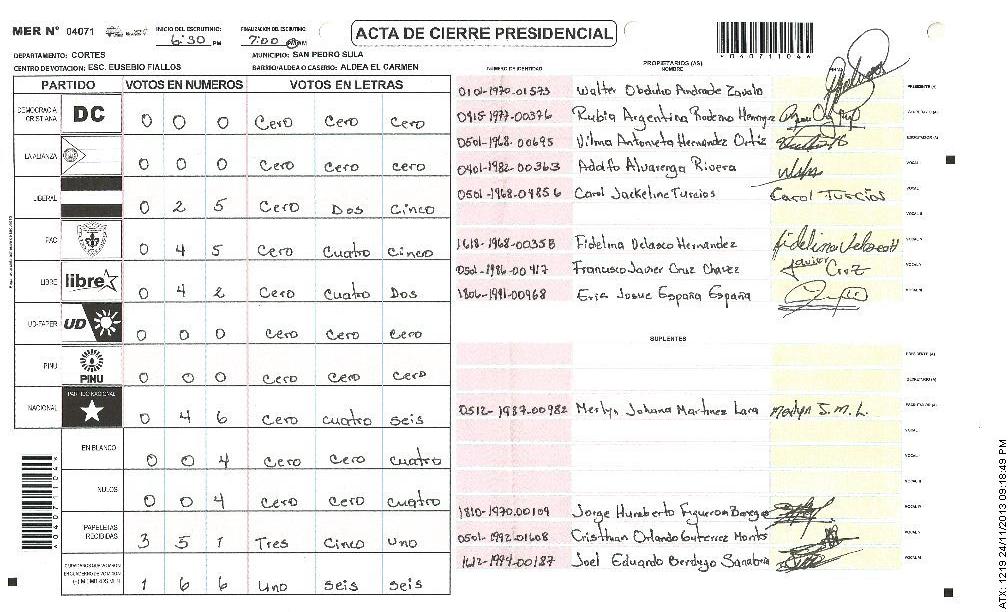 MER Nº 04071
INICIO DEL ESCRUTINIO: 6:30 PM
FINALIZACION DEL ESCRUTINIO: 7:00
ACTA DE CIERRE PRESIDENCIAL
DEPARTAMENTO: CORTES MUNICIPIO: SAN PEDRO SULA
CENTRO DE VOTACION: ESC. EUSEBIO FIALLOS BARRIO/ALDEA O CASERIO: ALDEA EL CARMEN
PARTIDO VOTOS EN NUMEROS VOTOS EN LETRAS
DEMOCRACIA CRISTIANA DC 0 0 0 Cero Cero Cero
LA ALIANZA 0 0 0 Cero Cero cero
LIBERAL 0 2 5 Cero Dos Cinco
PAC 0 4 5 Cero Cuatro Cinco
LIBRE libre 0 4 2 Cero Cuatro Dos
UD-FAPER UD 0 0 0 Cero Cero Cero
PINU PINU 0 0 0 Cero Cero Cero
NACIONAL PARTIDO NACIONAL 0 4 6 Cero cuatro seis
EN BLANCO 0 0 4 Cero Cero cuatro
NULOS 0 0 4 Cero Cero cuatro
PAPELETAS RECIBIDAS 3 5 1 Tres Cinco uno
1 6 6 uno seis seis
NUMERO DE IDENTIDAD PROPIETARIOS (AS) NOMBRE
0101-1970-01573 Walter Obdulio Andrade Zavala PRESIDENTE (A)
0415-1977-00376 Rubia Argentina
0501-1968-00695 Vilma Antonieta Hernandez Ortiz
0401-1982-00363 Adolfo Alvarenga Rivera
0501-1968-04856 Carol Jackeline Turcios Carol Turcios
1618-1968-00358 Fidelina Velasco Hernandez Fidelina
0501-1986-00417 Francisco Javier Cruz Chavez Javier Cruz
1806-1991-00968 Eric Josue España España
SUPLENTES
PRESIDENTE (A)
SECRETARIO (A)
0512-1987-00982 Merlyn Johana Martinez Lara Merlyn J.M.L.
1810-1970-00109 Jorge Humberto Figueroa
0501-1992-01608 Cristhian Orlando Gutierrez
1612-1994-00187 Joel Eduardo Berdugo Sanabria
*040711046*
ATX: 1219 24/11/2013 09:18:49 PM